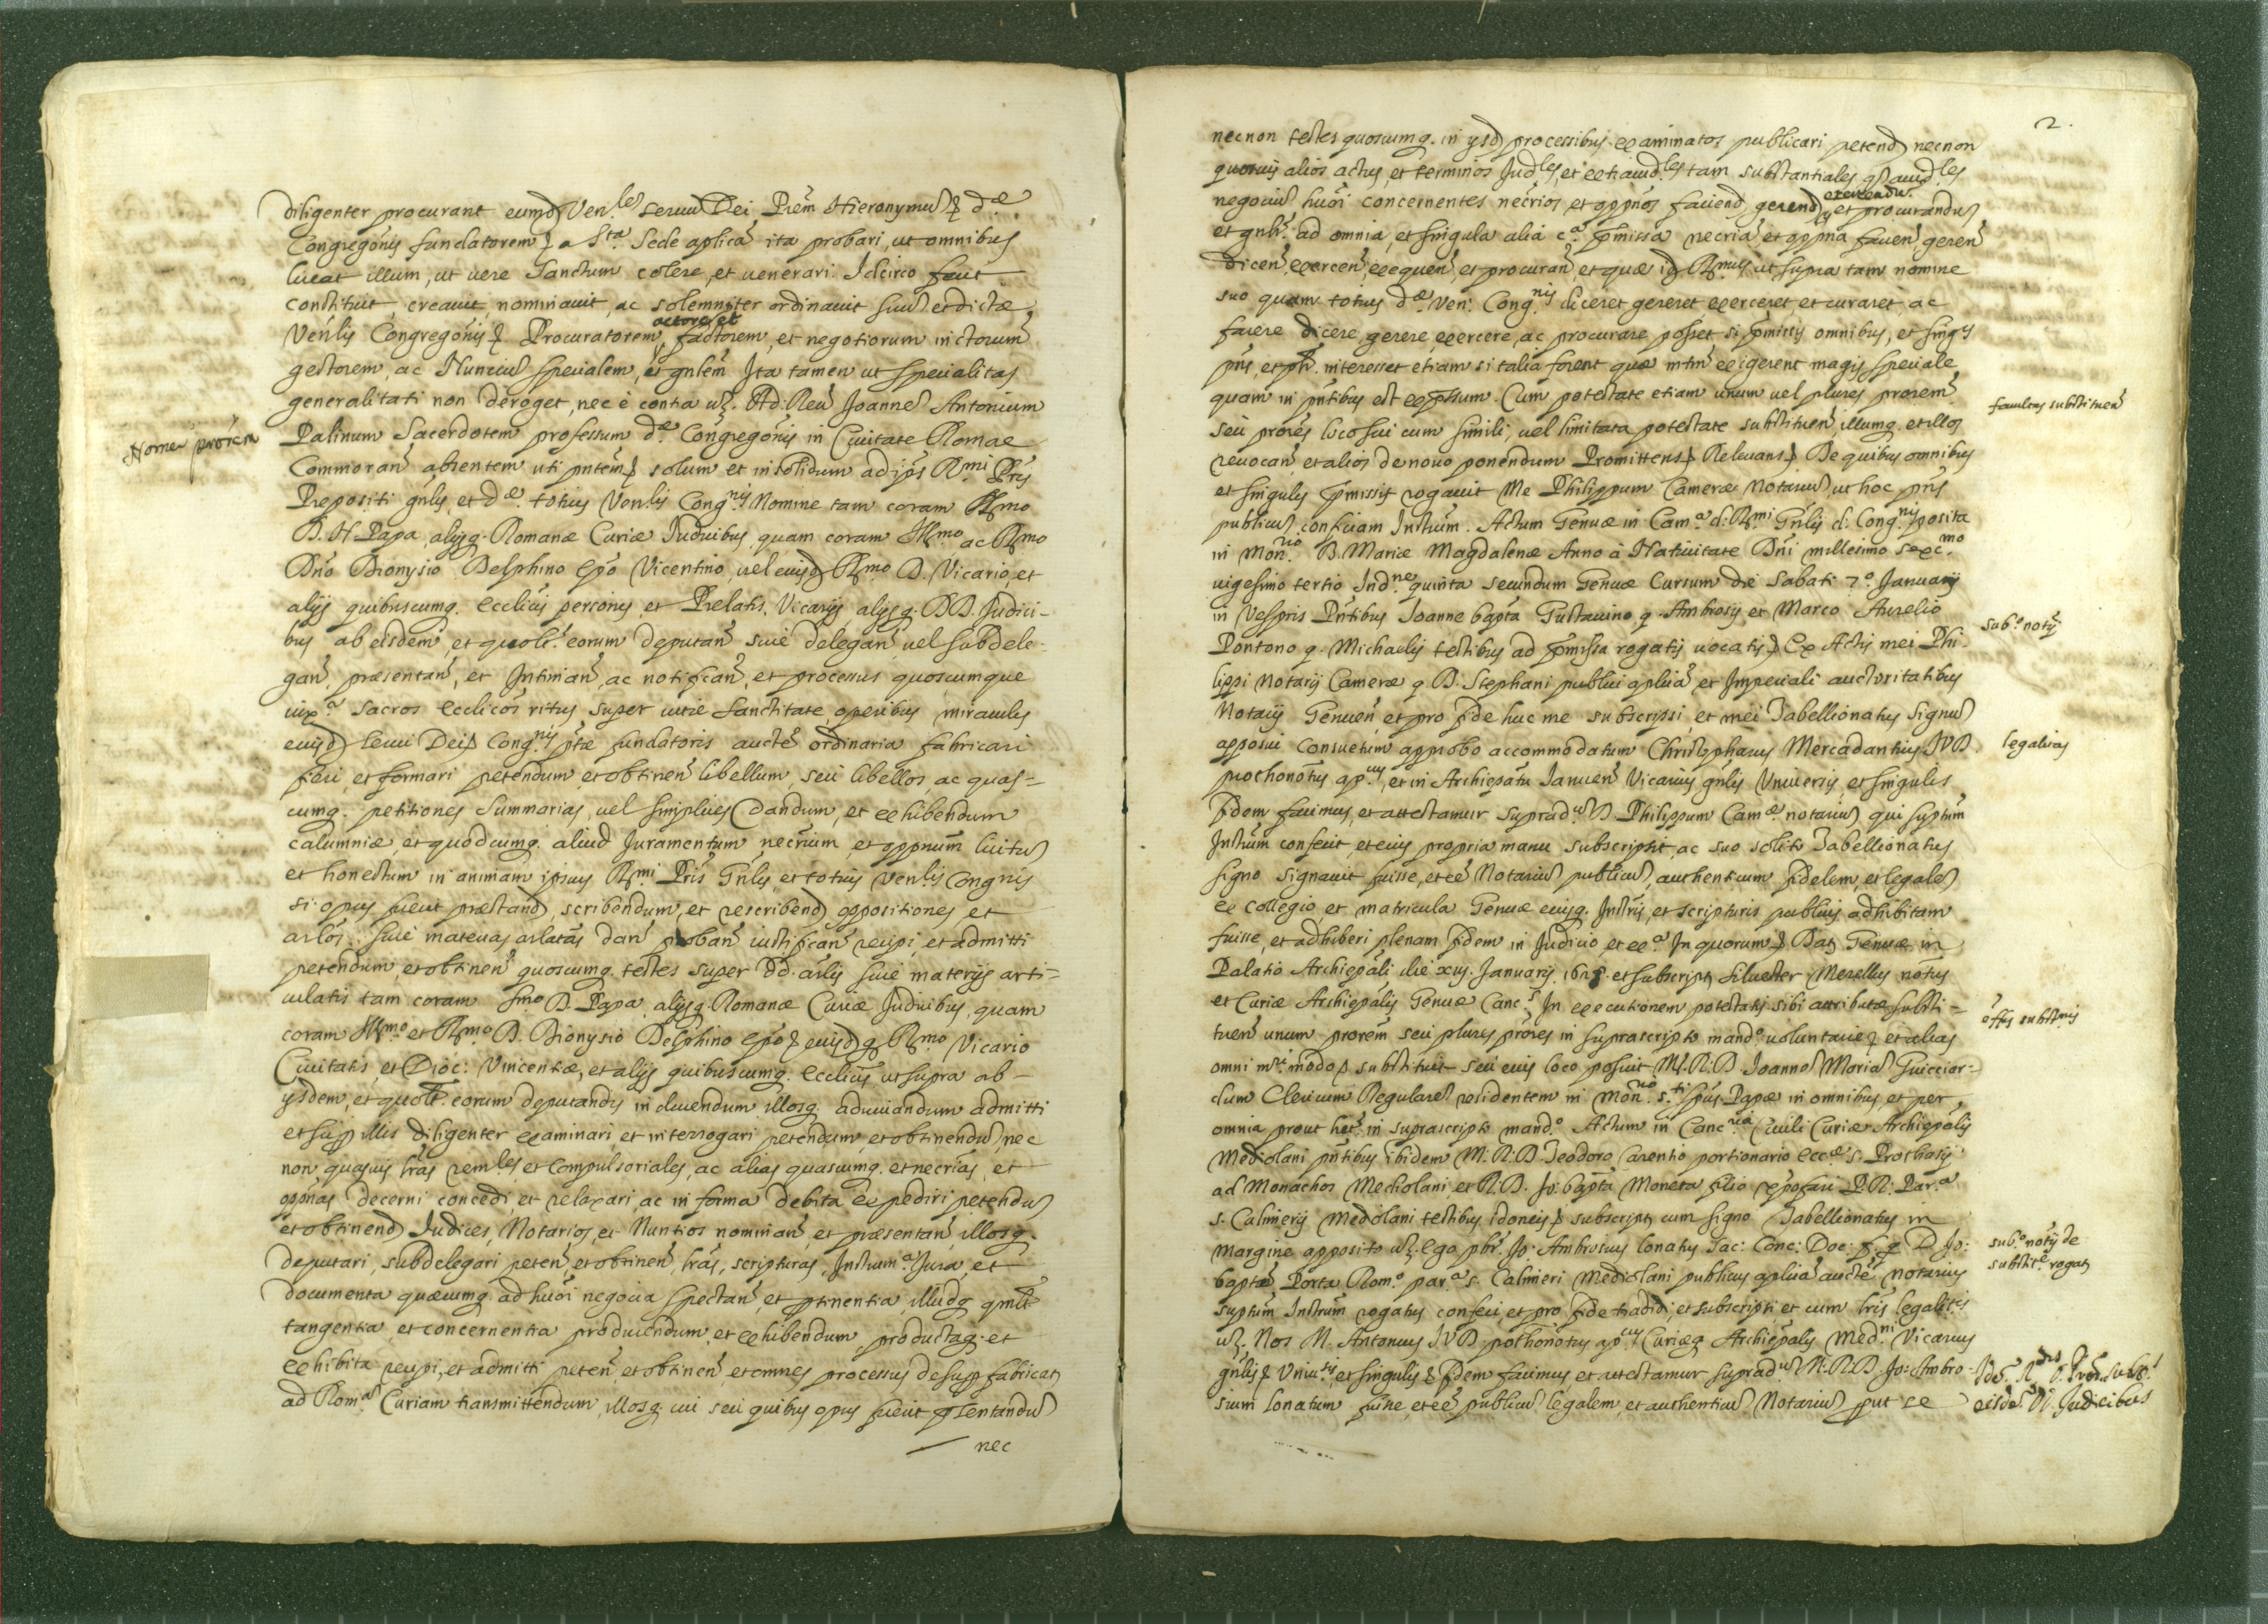 diligenter procurant eumd. Ven.les seruū Dei Prēm Hieronymū d.æ
Congregōnis fundatorem a S.ta Sede aplicā ita probari, ut omnibus
liceat illum, ut vere Sanctum colere, et venerari. Idcirco fecit
constituit, creauit, nominauit, ac solemniter ordinauit suū et dictæ
Venlis Congregōnis Procuratorem, actorē, et factorem, et negotiorum infrctorum
gestorem, ac Nunciū specialem, et gnlēm Ita tamen ut specialitas
generalitati non deroget, nec è contra uz. Ad. Reu. Joannē Antonium
Nome prōrēm
Palinum Sacerdotem professum d.æ Congregōnis in Ciuitate Romae
Commoran̄ absentem uti pntēm solum et insolidum ad ipsius R.mi Pris
Prepositi gnlis, et d.æ totius Venlis Cong.nis Nomine tam coram S.mo
D. N. Papa, alijsq. Romanæ Curiæ Iudicibus, quam coram Ill.mo ac R.mo
Dno Dionysio Delphino Epō Vicentino, uel eiusd. R.mo D. Vicario, et
alijs quibuscumq. ecclicis personis et Prelatis, Vicarijs alijsq. DD. Iudici-
bus ab eisdem, et quolt. eorum deputan̄ siue delegan̄ uel subdele-
gan̄, præsentan̄, et Intiman̄, ac notifican̄, et processus quoscumque
iux.a sacros ecclicōs ritus super uitæ sanctitate, operibus, miraculis
eiusd. serui Dei Cong.nis ptæ fundatoris auctē ordinaria fabricari
fieri, et formari petendum, et obtinen̄ libellum, seu libellos, ac quas-
cumq. petitiones summarias, uel simplices dandum, et exhibendum
calumniæ, et quodcumq. aliud Juramentum necrium, et oppnum licitū
et honestum in animam ipsius R.mi Pris Gnlis, et totius Venlis Congnis
si opus fuerit præstand., scribendum, et rescribend. oppositiones et
arlos siue materias arlatas dan̄ proban̄ iustifican̄ recipi, et admitti
petendum, et obtinen̄ quoscumq. testes super dd. arlis siue materijs arti-
culatis tam coram S.mo D. Papa alijsq. Romanæ Curiæ Iudicibus, quam
coram Ill.mo et R.mo D. Dionysio Delphino Epō eiusd.q. R.mo Vicario
Ciuitatis, et Dioc: Vincentiæ, et alijs quibuscumq. ecclicis ut supra ab
ysdem, et quolt. eorum deputandis inducendum illosq. aduiuandum admitti
et sup illis diligenter examinari, et interrogari petendum, et obtinendū, nec
non quasuis lrās rem.les, et Compulsoriales, ac alias quascumq. et necrias, et
oppnas decerni concedi, et relaxari, ac in forma debita expediri petendū
et obtinend. Iudices, Notarios, et Nuntios nominan̄ et præsentan̄, illosq.
deputari, subdelegari peten̄, et obtinen̄, lrās, scripturas, Instrum.a Jura, et
documenta quæcumq. ad huōi negocia spectan̄ et ptinentia, illudq. qmlt.
tangentia, et concernentia producendum et exhibendum, productaq. et
exhibita recipi, et admitti peten̄ et obtinen̄ et omnes processus desup fabricat.
ad Rom.a Curiam transmittendum, illosq. cui seu quibus opus fuerit pſentandū
nec
2.
necnon testes quoscumq. in ysd. processibus examinatos publicari petend. necnon
quosuis alios actus, et terminos Iud.les, et extraiud.les tam substantiales q. accid.les
negociū huōi concernentes necrios, et oppnos faciend. gerend. exercendū et procurandū
et gnlr. ad omnia, et singula alia c.a pmissa necria, et oppna facien̄, geren̄
dicen̄, exercen̄, exequen̄, et procuran̄ et quæ id. R.mus ut supra tam nomine
suo quam totius d.æ Ven. Cong.nis diceret, gereret, exerceret, et curaret, ac
facere, dicere, gerere, exercere, ac procurare posset, si pmissis omnibus, et sing.s
pns, et pr. interesset etiam si talia forent quæ mtm exigerent magis speciale
quam in pntibus est expssum. Cum potestate etiam unum uel plures prorem
facultas substituen̄
seu prores loco sui cum simili, uel limitata potestate substituen̄, illumq. et illos
reuocan̄ et alios de nouo ponendum Promittens Releuans De quibus omnibus
et singulis pmissis rogauit Me Philippum Cameræ Notariū, ut hoc pns
publicū conficiam Instrum. Actum Genuæ in Cam.a d. R.mi Gnlis d. Cong.nis posita
in Mon.rio B. Mariæ Magdalenæ Anno à Natiuitate Dni millesimo sexc.mo
uigesimo tertio Ind.ne quinta secundum Genuæ Cursum die Sabati 7.o Januarij
in Vespris Pntibus Joanne bapta Gustauino q. Ambrosij, et Marco Aurelio
Sub.o notij
Pontono q. Michaelis testibus ad pmissa rogatis uocatis Ex Actis mei Phi-
lippi Notarij Cameræ q. D. Stephani publici aplica, et Imperiali auctoritatibus
Notarij Genuen̄ et pro fide huc me subscripsi, et mei Tabellionatus signū
legalitas
apposui consuetum approbo accommodatum Christophorus Mercadantius J.V.D.
prothonotus ap.cus, et in Archiepatu Januen̄ Vicarius gnlis Vniuersis, et singulis
fidem facimus, et attestamur suprad.um D. Philippum Cam.æ notariū, qui suptum
Instrum confecit, et eius propria manu subscripsit, ac suo solito Tabellionatus
signo signauit fuisse, et eē Notariū publicū, authenticum fidelem, et legalē
ex collegio et matricula Genuæ eiusq. Instris, et scripturis publicis adhibitam
fuisse, et adhiberi plenam fidem in Iudicio, et ex.a In quorum Dat. Genuæ in
Palatio Archiepali die xiij. Januarij 1623. et subscript. Siluester Merellus notus
et Curiæ Archiepalis Genuæ Canc.s In executionem potestatis sibi attributæ substi-
effs substnis
tuen̄ unum prorem seu plures prores in suprascripto mand.o uoluntarie et alias
omni m.ri modo substituit seu eius loco posuit M. R. D. Joannē Mariā Guicciar-
dum Clericum Regularē residentem in Mon.rio S.ti Spus Papæ in omnibus, et per
omnia prout het. in suprascripto mand.o Actum in Canc.ria Ciuili Curiæ Archiepalis
Mediolani pntibus ibidem M. R. D. Teodoro Carentio portionario Ecc.æ S. Prothasij
ad Monachos Mediolani et R. D. Jo: bapta Moneta filio xpofari P. R. Par.a
S. Calimerij Mediolani testibus idoneis subscript. cum signo Tabellionatus in
sub.o notij de
margine apposito uz. Ego pbr. Jo: Ambrosius Lonatus Sac: Conc: Doc: D. Jo:
substit.e rogat.
baptæ Porta Rom.a par.a S. Calimeri Mediolani publicus aplica auctē notarius
suptum Instrum rogatus confeci, et pro fide tradidi, et subscripsi et cum lris legalitis
uz. Nos M. Antonius J.V.D. pothonotus ap.cus Curiæq. Archiepalis Med.ni Vicarius
gnlis Vniu.sis, et singulis fidem facimus et attestamur suprad.um M. R. D. Jo: Ambro-
sium Lonatum fuisse, et eē publicū legalem, et authenticū Notariū put se
eisdē DD. Judicibus